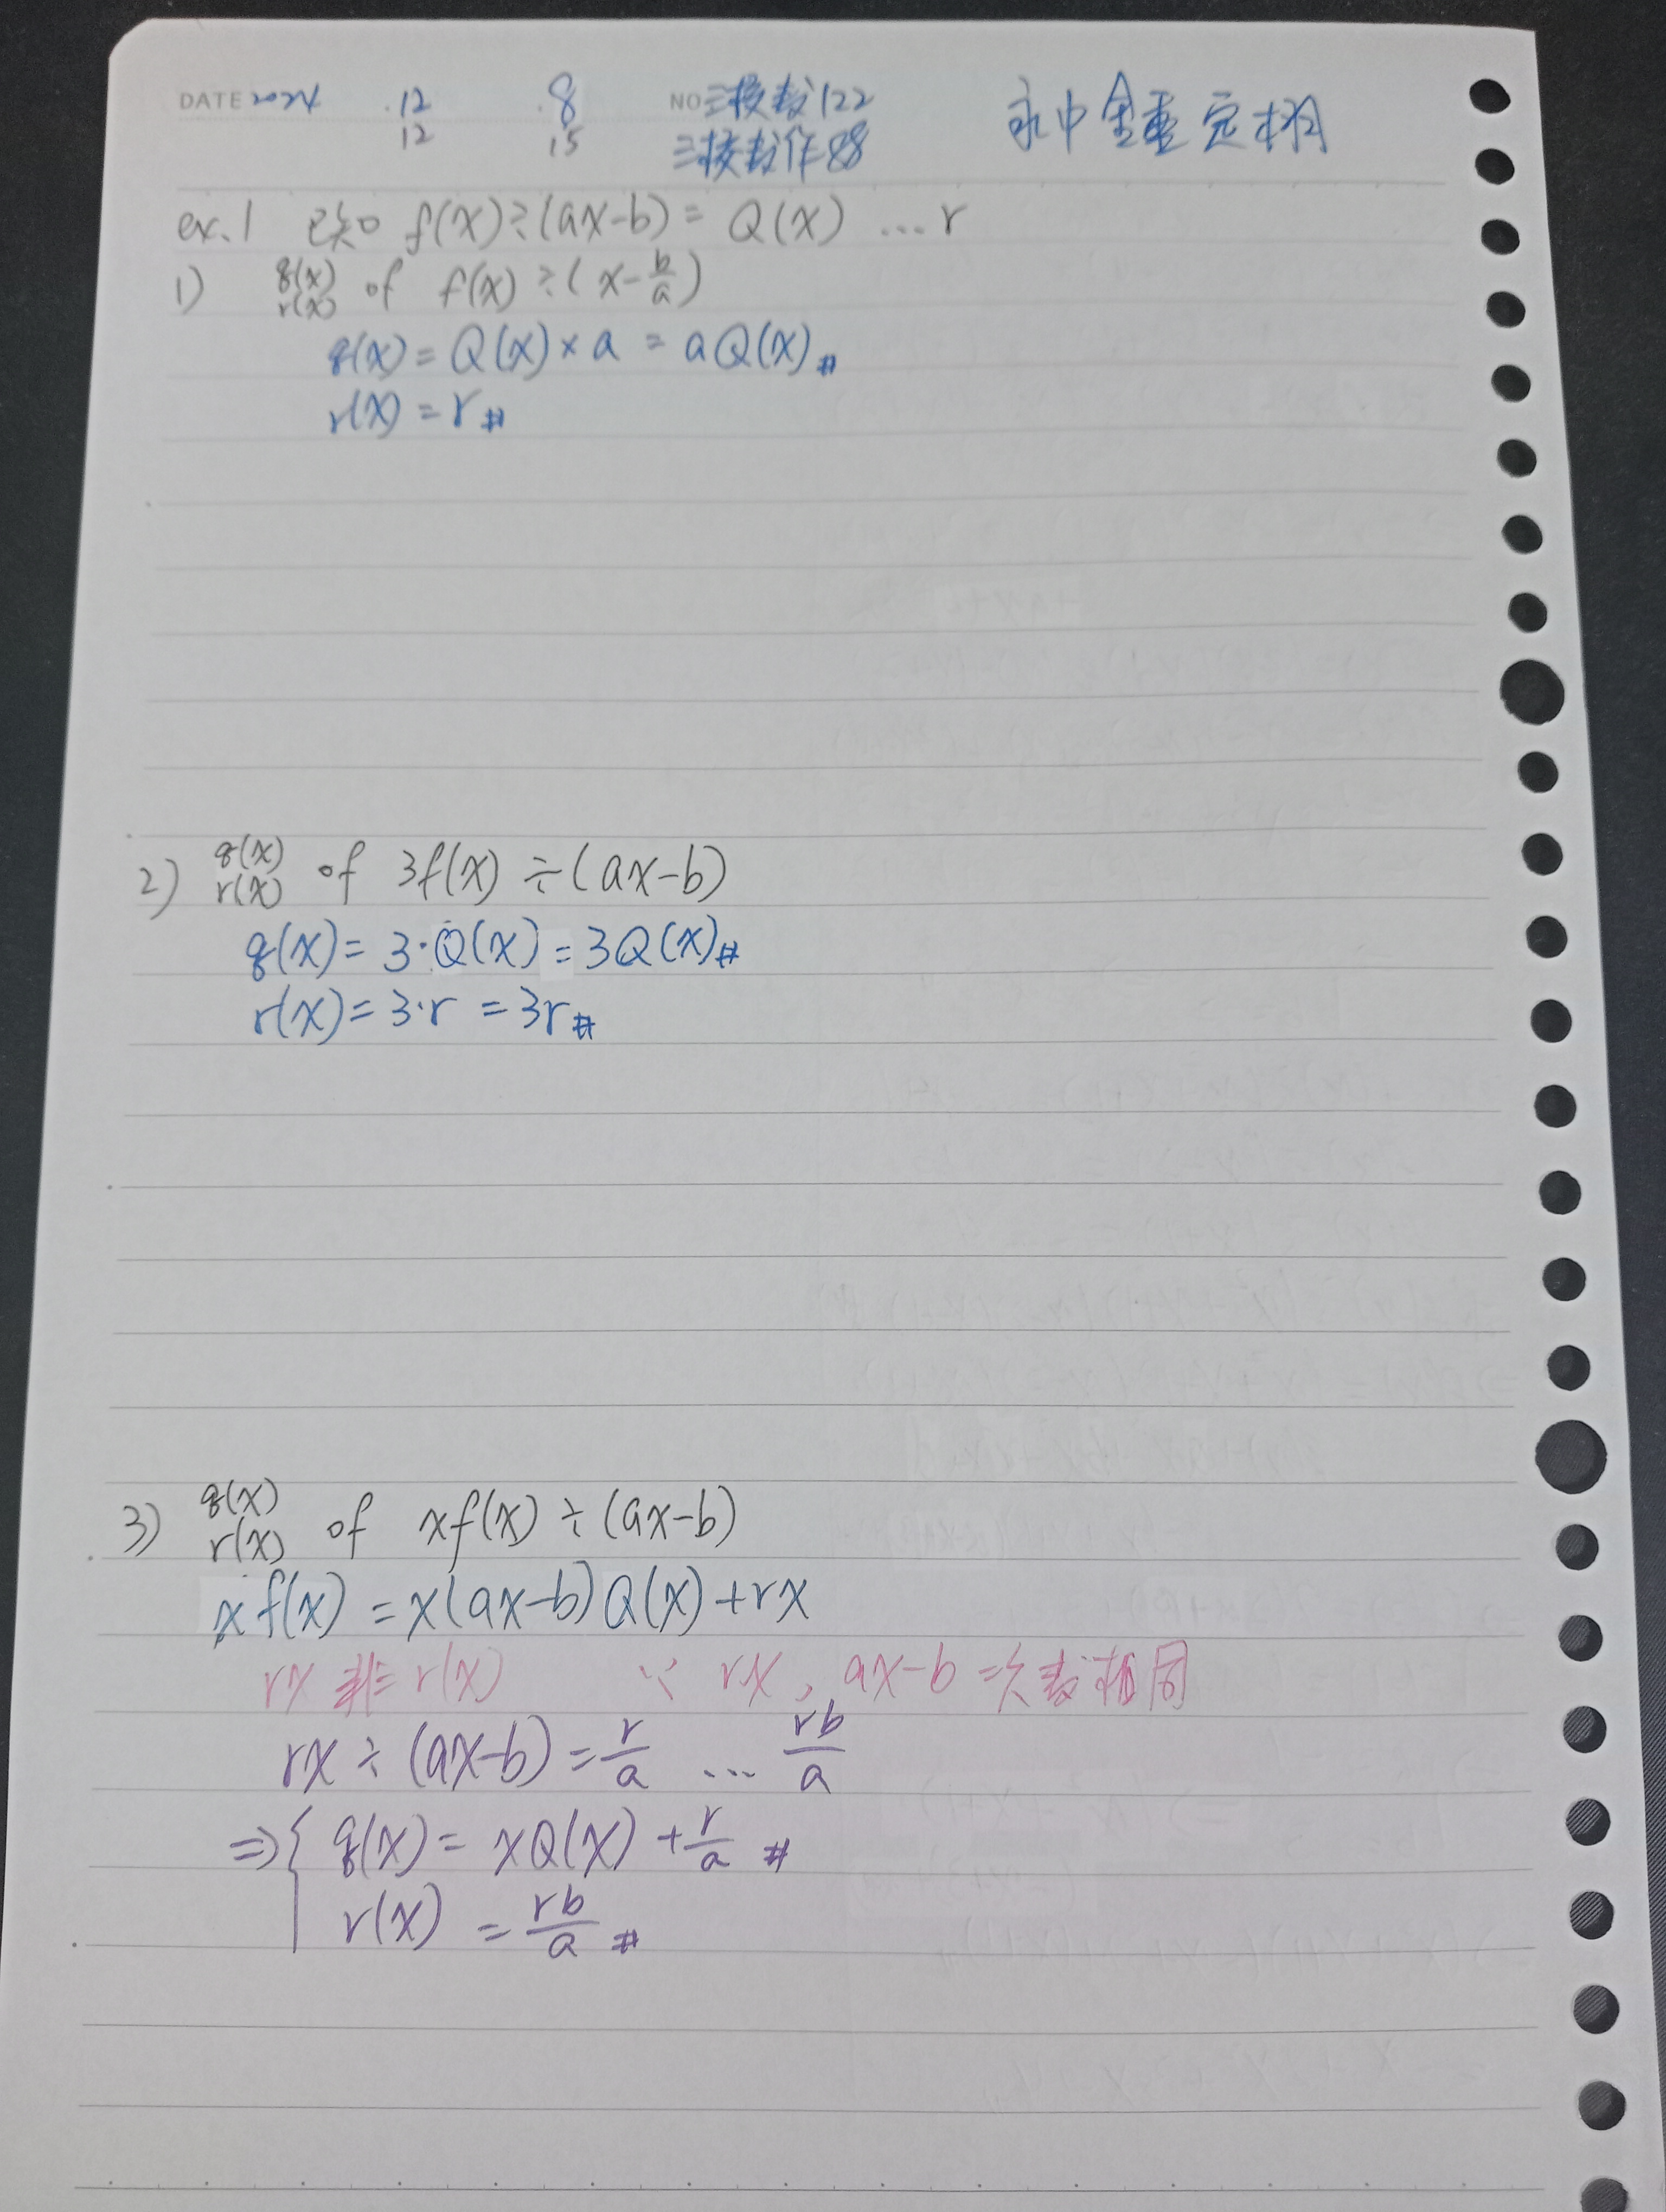 DATE 2024 .12 .8 NO 三接数122 永中 鐘定栩
12 15 三接数作88
ex.1 已知 f(x)÷(ax-b)= Q(x) ...r
1) q(x) r(x) of f(x)÷(x-b/a)
q(x)=Q(x)×a = aQ(x)#
r(x)=r#
2) q(x) r(x) of 3f(x)÷(ax-b)
q(x)=3·Q(x)=3Q(x)#
r(x)=3·r =3r#
3) q(x) r(x) of xf(x)÷(ax-b)
xf(x)=x(ax-b)Q(x)+rx
rx 非 r(x) ∵ rx, ax-b 次数相同
rx÷(ax-b)=r/a ... rb/a
⇒{ q(x)= xQ(x)+r/a #
r(x) = rb/a #